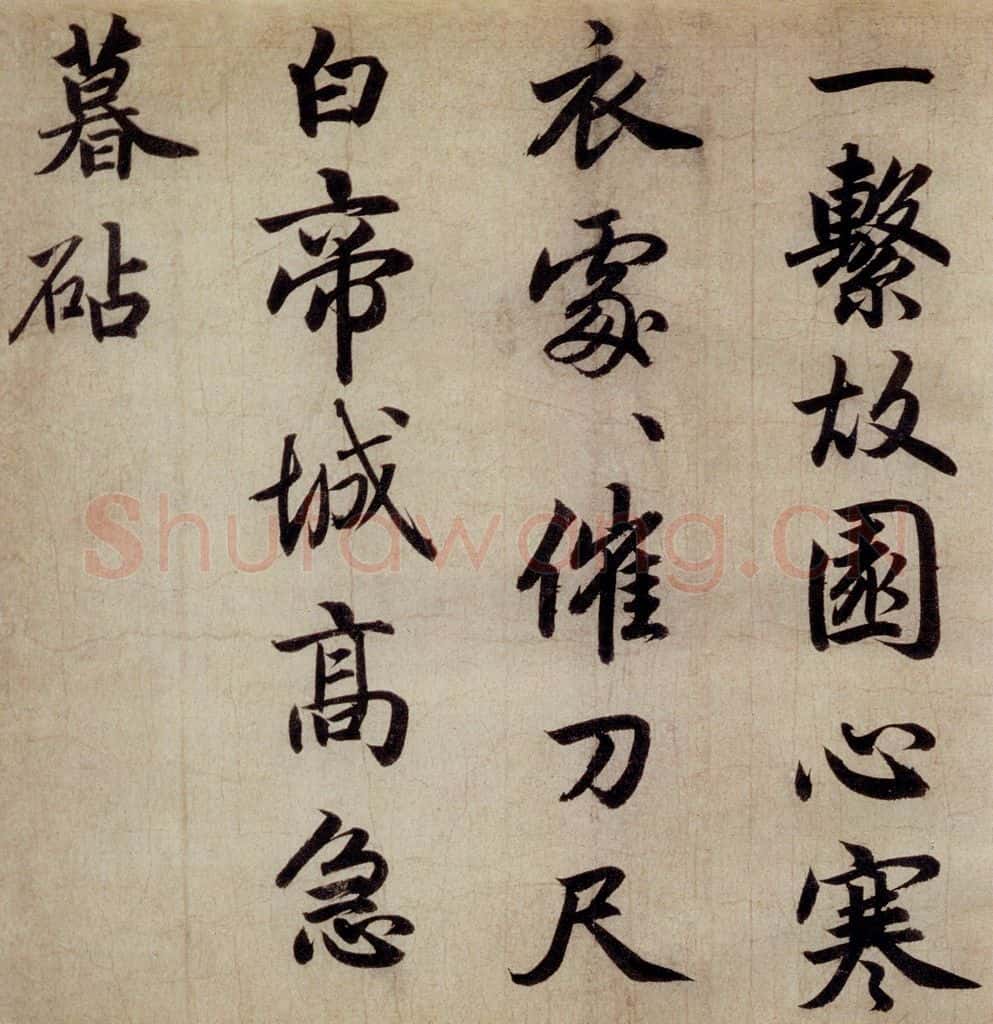 一繫故園心寒
衣處、催刀尺
白帝城高急
暮砧
Shufawang.CN